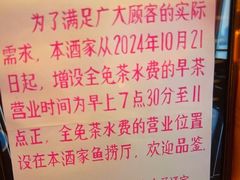 为了满足广大顾客的实际
需求，本酒家从2024年10月21
日起，增设全免茶水费的早茶
营业时间为早上7点30分至11
点正，全免茶水费的营业位置
设在本酒家鱼捞厅，欢迎品鉴